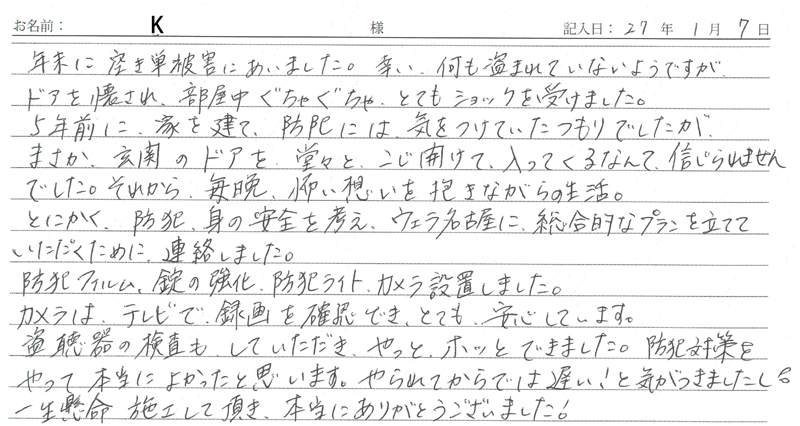 お名前: K 様 記入日: 27年 1月 7日
年末に空き巣被害にあいました。幸い、何も盗まれていないようですが、
ドアを壊され、部屋中ぐちゃぐちゃ、とてもショックを受けました。
5年前に、家を建て、防犯には、気をつけていたつもりでしたが、
まさか、玄関のドアを、堂々と、こじ開けて、入ってくるなんて、信じられません
でした。それから、毎晩、怖い想いを抱きながらの生活。
とにかく、防犯、身の安全を考え、ウェラ名古屋に、総合的なプランを立てて
いただくために、連絡しました。
防犯フィルム、錠の強化、防犯ライト、カメラ設置しました。
カメラは、テレビで、録画を確認でき、とても、安心しています。
盗聴器の検査も、していただき、やっと、ホッとできました。防犯対策を
やって本当によかったと思います。やられてからでは遅い!と気がつきましたし。
一生懸命施工して頂き、本当にありがとうございました!